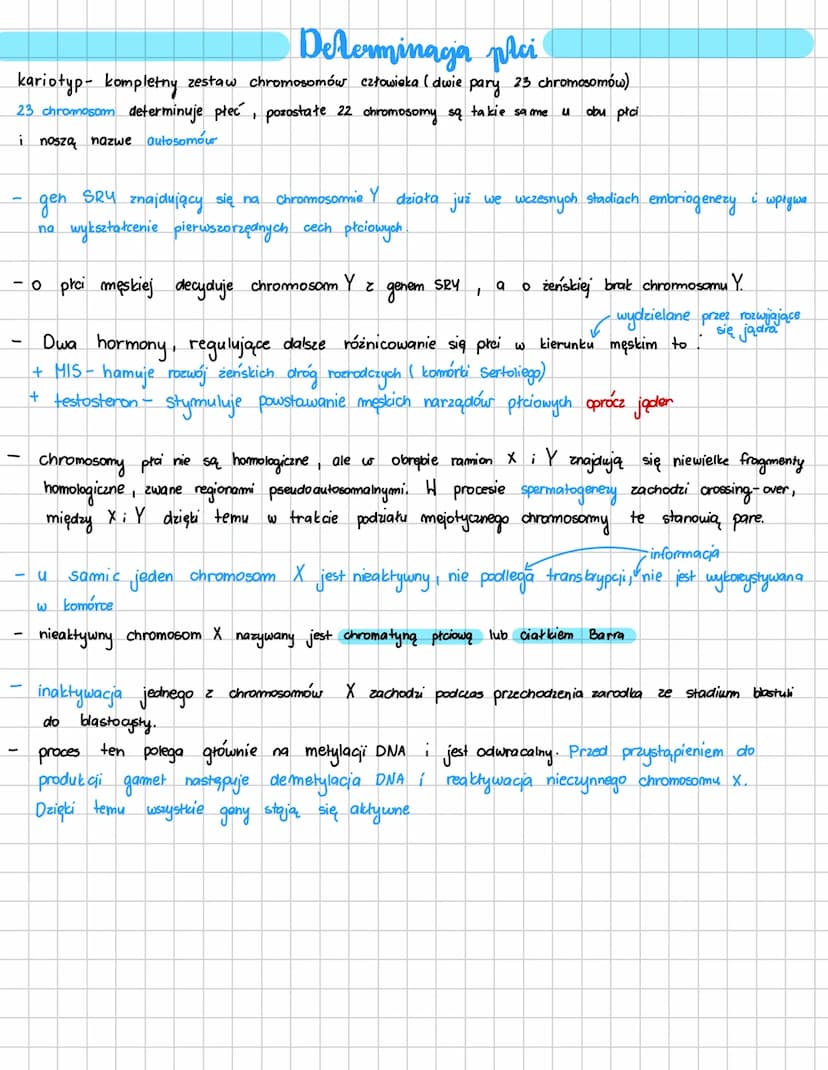 Determinacja płci
kariotyp- kompletny zestaw chromosomów człowieka (dwie pary 23 chromosomów)
23 chromosom determinuje płeć, pozostałe 22 chromosomy są takie same u obu płci
i noszą nazwe autosomów
- gen SRY znajdujący się na chromosomie Y działa już we wczesnych stadiach embriogenezy i wpływa
na wykształcenie pierwszorzędnych cech płciowych.
- o płci męskiej decyduje chromosom Y z genem SRY, a o żeńskiej brak chromosomu Y.
wydzielane przez rozwijające
się jądra
- Dwa hormony, regulujące dalsze różnicowanie się płci w kierunku męskim to:
+ MIS - hamuje rozwój żeńskich dróg rozrodczych (komórki Sertoliego)
+ testosteron - stymuluje powstawanie męskich narządów płciowych oprócz jąder
- chromosomy płci nie są homologiczne, ale w obrębie ramion X i Y znajdują się niewielke fragmenty
homologiczne, zwane regionami pseudoautosomalnymi. W procesie spermatogenezy zachodzi crossing-over,
między X i Y dzięki temu w trakcie podziału mejotycznego chromosomy te stanowią pare.
informacja
- u samic jeden chromosom X jest nieaktywny, nie podlega transkrypcji, nie jest wykorzystywana
w komórce
- nieaktywny chromosom X nazywany jest chromatyną płciową lub ciałkiem Barra
- inaktywacja jednego z chromosomów X zachodzi podczas przechodzenia zarodka ze stadium blastuli
do blastocysty.
- proces ten polega głównie na metylacji DNA i jest odwracalny. Przed przystąpieniem do
produkcji gamet następuje demetylacja DNA i reaktywacja nieczynnego chromosomu X.
Dzięki temu wszystkie geny stają się aktywne